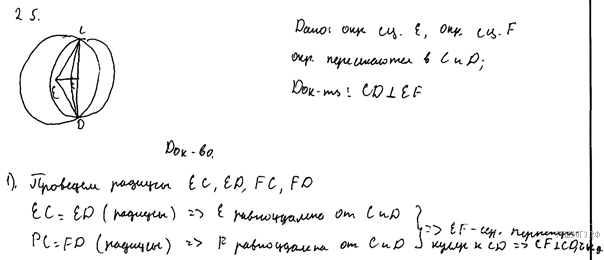 25.
Дано: окр с ц. E, окр с ц. F
окр. пересекаются в C и D;
Док-ть: CD⊥EF
C
E
F
D
Док-во.
1). Проведем радиусы EC, ED, FC, FD
EC = ED (радиусы) => E равноудалена от C и D
FC = FD (радиусы) => F равноудалена от C и D
=> EF - сер. перпен
куляр к CD => EF⊥CD